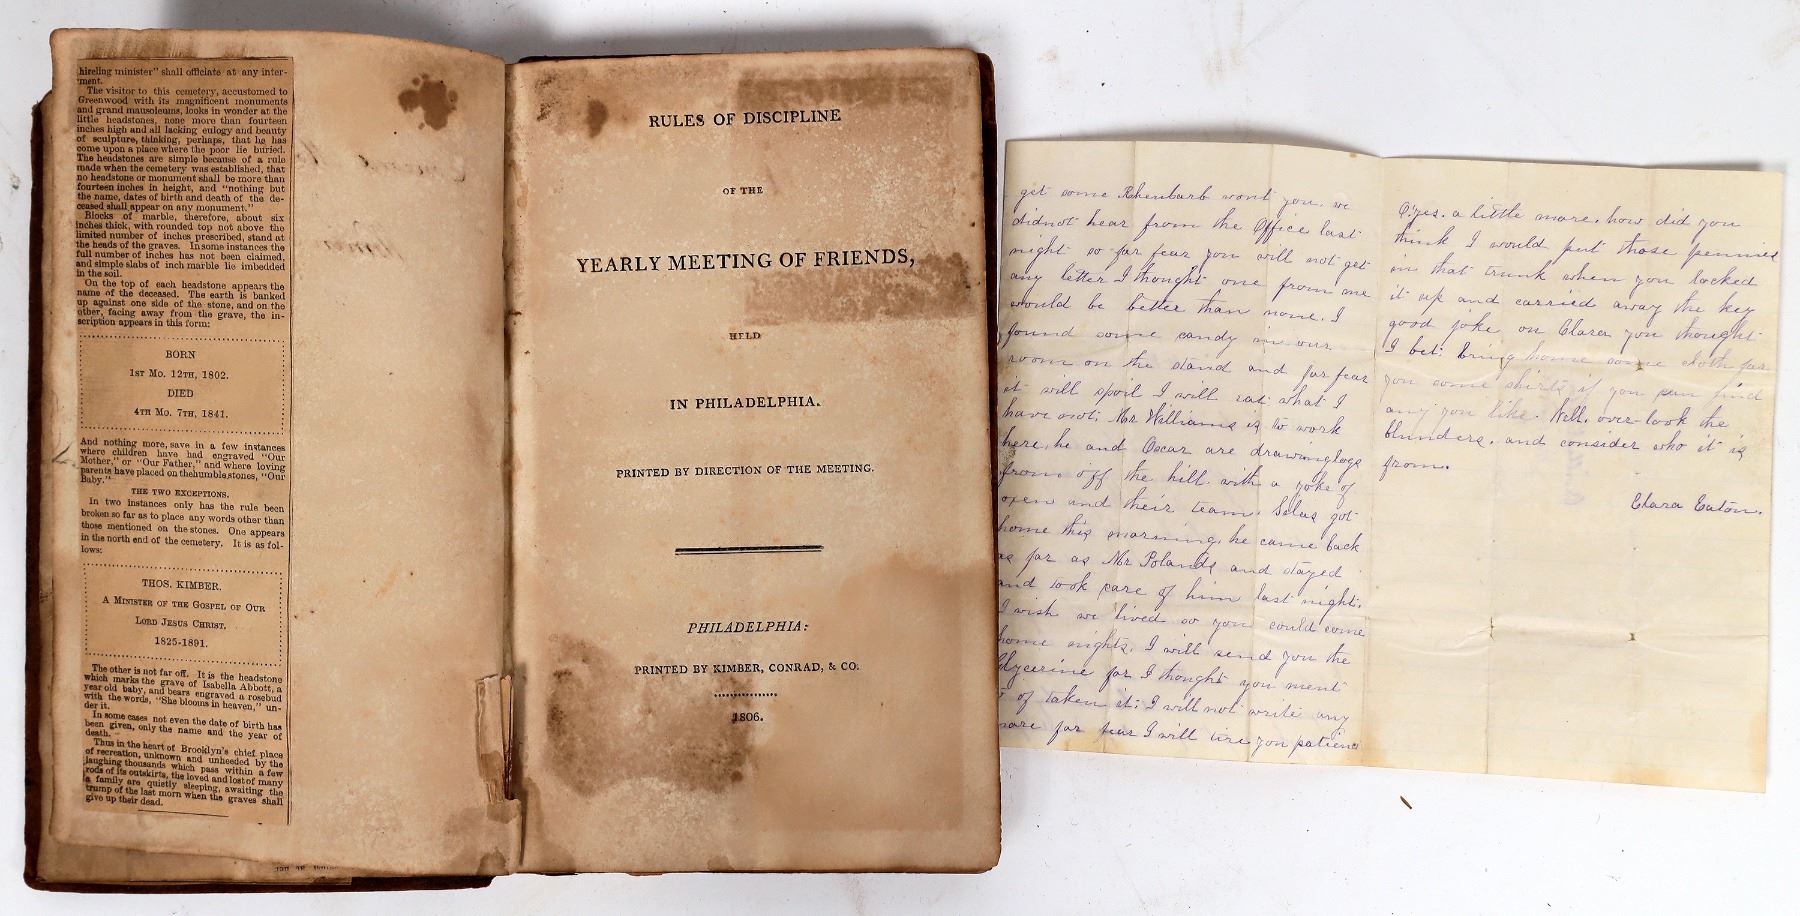 hireling minister" shall officiate at any inter-
ment.
The visitor to this cemetery, accustomed to
Greenwood with its magnificent monuments
and grand mausoleums, looks in wonder at the
little headstones, none more than fourteen
inches high and all lacking eulogy and beauty
of sculpture, thinking, perhaps, that he has
come upon a place where the poor lie buried.
The headstones are simple because of a rule
made when the cemetery was established, that
no headstone or monument shall be more than
fourteen inches in height, and "nothing but
the name, dates of birth and death of the de-
ceased shall appear on any monument."
Blocks of marble, therefore, about six
inches thick, with rounded top not above the
limited number of inches prescribed, stand at
the heads of the graves. In some instances the
full number of inches has not been claimed,
and simple slabs of inch marble lie imbedded
in the soil.
On the top of each headstone appears the
name of the deceased. The earth is banked
up against one side of the stone, and on the
other, facing away from the grave, the in-
scription appears in this form:
BORN
1ST MO. 12TH, 1802.
DIED
4TH MO. 7TH, 1841.
And nothing more, save in a few instances
where children have had engraved "Our
Mother," or "Our Father," and where loving
parents have placed on the humble stones, "Our
Baby."
THE TWO EXCEPTIONS.
In two instances only has the rule been
broken so far as to place any words other than
those mentioned on the stones. One appears
in the north end of the cemetery. It is as fol-
lows:
THOS. KIMBER.
A MINISTER OF THE GOSPEL OF OUR
LORD JESUS CHRIST.
1825-1891.
The other is not far off. It is the headstone
which marks the grave of Isabella Abbott, a
year old baby, and bears engraved a rosebud
with the words, "She blooms in heaven," un-
der it.
In some cases not even the date of birth has
been given, only the name and the year of
death.
Thus in the heart of Brooklyn's chief place
of recreation, unknown and unheeded by the
laughing thousands which pass within a few
rods of its outskirts, the loved and lost of many
a family are quietly sleeping, awaiting the
trump of the last morn when the graves shall
give up their dead.
RULES OF DISCIPLINE
OF THE
YEARLY MEETING OF FRIENDS,
HELD
IN PHILADELPHIA.
PRINTED BY DIRECTION OF THE MEETING.
PHILADELPHIA:
PRINTED BY KIMBER, CONRAD, & CO.
1806.
get some Rhenbarb wont you. we
didnot hear from the Office last
night so for fear you will not get
any letter I thought one from me
would be better than none. I
found some candy in our
room on the stand and for fear
it will spoil I will eat what I
have not. Mr Williams is to work
here, he and Oscar are drawing logs
from off the hill with a yoke of
oxen and their team. Silas got
home this morning, he came back
as far as Mr Polands and stayed
and took care of him last night.
I wish we lived so you could come
home nights. I will send you the
Glycerine for I thought you ment
of taken it. I will not write any
more for fear I will tire you patience
O! yes. a little more. how did you
think I would put those pennies
in that trunk when you locked
it up and carried away the key
good joke on Clara you thought
I bet. Bring home some cloth for
you some shirts if you can find
any you like. Well, over look the
blunders. and consider who it is
from.
Clara Eaton.